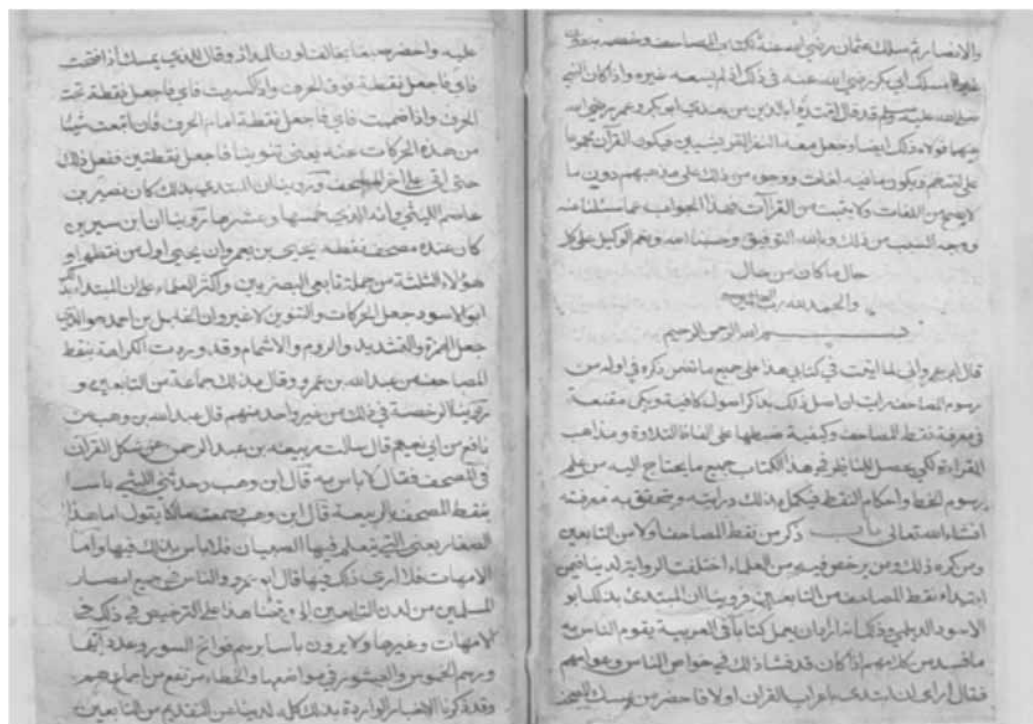 والانصار ثم سلك عثمان رضي الله عنه بكتابة المصاحف وخصه
مسلك ابي بكر رضي الله عنه في ذلك اذ لم يسعه غيره واذ كان النبي
صلى الله عليه وسلم قد قال اقتدوا بالذين من بعدي ابو بكر وعمر رضي الله
عنهما فولاه ذلك ايضا وجعل معه النفر القرشيين فيكون القرآن مجموعا
على لغتهم ويكون ما فيه لغات ووجوه من ذلك على مذهبهم دون ما
لا يصح من اللغات ولا يثبت من القراآت فهذا الجواب عما سئلنا عنه
ووجه السبب من ذلك وبالله التوفيق وحسبنا الله ونعم الوكيل على كل
حال ما كان من حال
والحمد لله رب
بسم الله الرحمن الرحيم
قال ابو عمرو واني لما اتيت في كتابي هذا على جميع ما تضمن ذكره في اوله من
رسوم المصاحف رايت ان اصل ذلك بذكر اصول كافية ونكت مقنعة
في معرفة نقط المصاحف وكيفية ضبطها على الفاظ التلاوة ومذاهب
القراءة لكي يحصل للناظر في هذا الكتاب جميع ما يحتاج اليه من علم
رسوم الخط واحكام النقط فيكمل بذلك درايته وتتحقق به معرفته
انشاء الله تعالى باب ذكر من نقط المصاحف اولا من التابعين
ومن كره ذلك ومن يرخص فيه من العلماء اختلفت الرواية لدينا فيمن
ابتداء نقط المصاحف من التابعين فروينا ان المبتدئ بذلك ابو
الاسود الديلمي وذلك انه اراد ان يعمل كتابا في العربية يقوم الناس به
ما فسد من كلامهم اذ كان قد فشا ذلك في خواص الناس وعوامهم
فقال ارى ان ابتدئ باعراب القران اولا فاحضر من يمسك المصحف
عليه واحضر صبغا يخالف لون المداد وقال للذي يمسك اذا فتحت
فاي فاجعل نقطة فوق الحرف واذا كسرت فاي فاجعل نقطة تحت
الحرف واذا ضممت فاي فاجعل نقطة امام الحرف فان اتبعت شيئا
من هذه الحركات غنه يعني تنوينا فاجعل نقطتين ففعل ذلك
حتى اتى على اخر المصحف وروينا ان المبتدي بذلك كان نصر بن
عاصم الليثي وانه الذي خمسها وعشرها وروينا ان ابن سيرين
كان عنده مصحف نقطه يحيى بن يعمر وان يحيى اول من نقطها و
هؤلاء الثلثة من جملة تابعي البصريين واكثر العلماء على ان المبتدا بذلك
ابو الاسود جعل الحركات والتنوين لا غير وان الخليل بن احمد هو الذي
جعل الهمزة والتشديد والروم والاشمام وقد وردت الكراهة بنقط
المصاحف من عبد الله بن عمرو وقال بذلك جماعة من التابعين و
روينا الرخصة في ذلك من غير واحد منهم قال عبد الله بن وهب عن
نافع بن ابي نعيم قال سالت ربيعة بن عبد الرحمن عن شكل القرآن
في المصحف فقال لا باس به قال ابن وهب وحدثني الليث باسا
بنقط المصحف بالربيعة قال ابن وهب وسمعت مالكا يقول اما هذا
الصغار يعني التي يتعلم فيها الصبيان فلا باس بذلك فيها واما
الامهات فلا ارى ذلك فيها قال ابو عمرو والناس في جميع امصار
المسلمين من لدن التابعين الى وقتنا هذا على الترخيص في ذلك في
لامهات وغيرها ولا يرون باسا برسم فواتح السور وعدد آيها
ورسم الخموس والعشور في مواضعها والخطاء مرتفع من اجماعهم
وقد ذكرنا الاخبار الواردة بذلك كله لدينا عن المتقدمين من التابعين